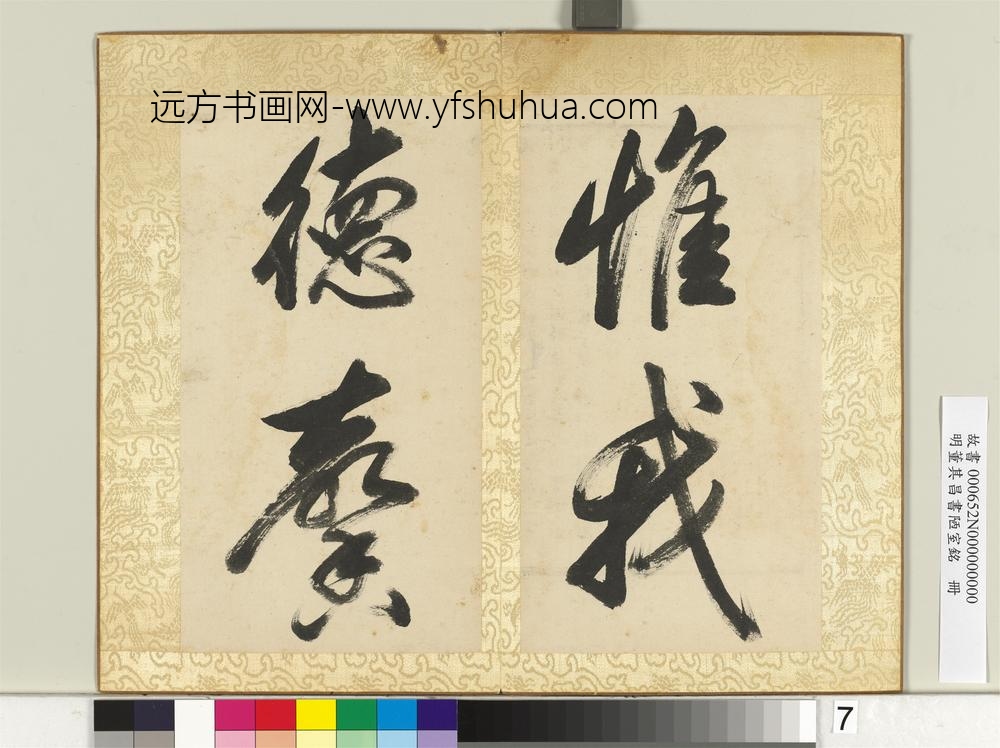 远方书画网-www.yfshuhua.com
惟我
德馨
故書 000652N000000000
明董其昌書陋室銘 冊
7